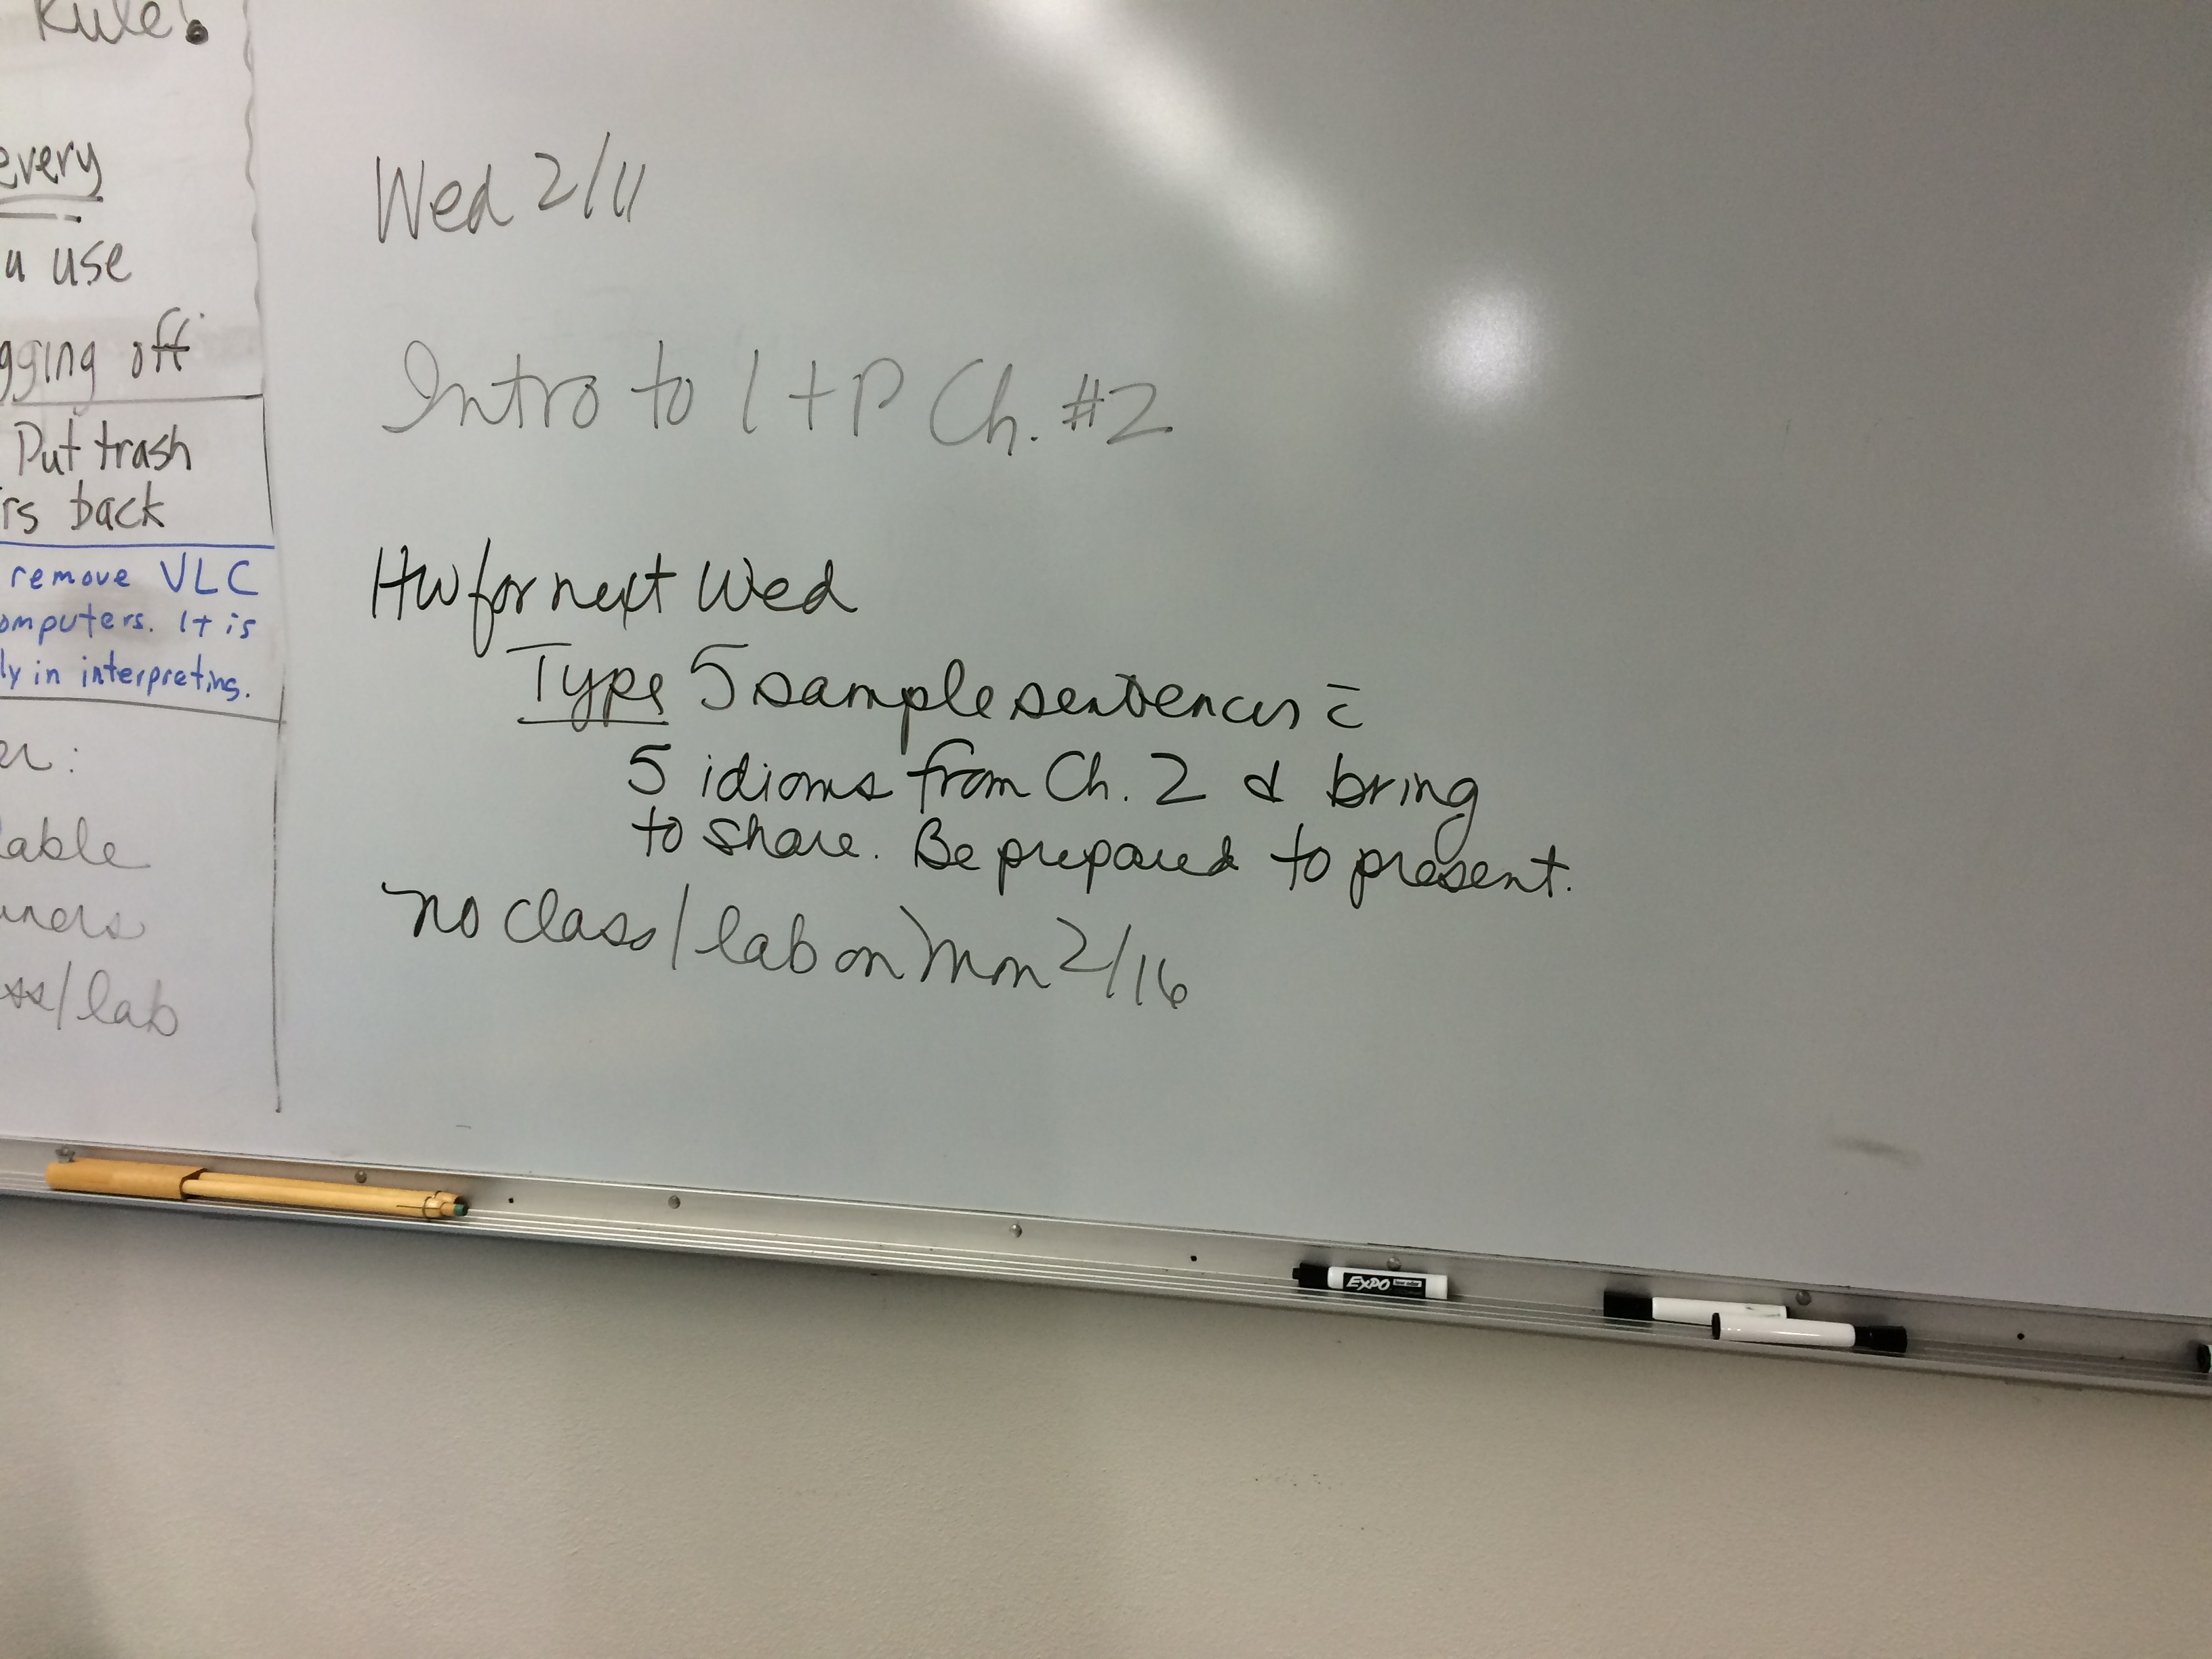 Rule!
every
u use
gging off
Put trash
rs back
remove VLC
omputers. It is
ly in interpreting.
er:
lable
ners
ss/lab
Wed 2/11
Intro to I + P Ch. #2
HW for next Wed
Type 5 sample sentences c̄
5 idioms from Ch. 2 & bring
to share. Be prepared to present.
no class/lab on Mon 2/16
EXPO